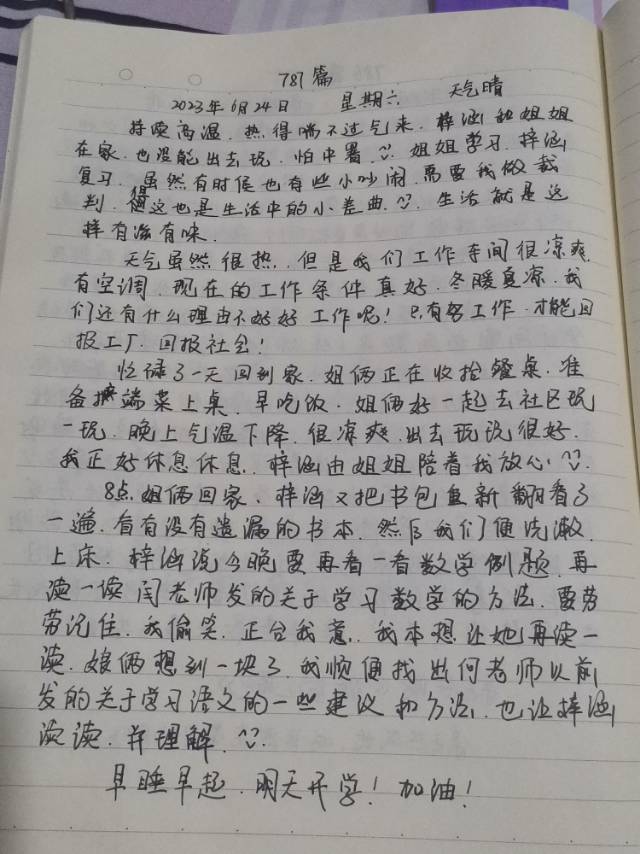 787篇
2023年6月24日 星期六 天气晴
持续高温，热得喘不过气来，梓涵和姐姐
在家，也没能出去玩，怕中暑，姐姐学习，梓涵
复习，虽然有时候也有些小吵闹，需要我做裁
判，但这也是生活中的小差曲，生活就是这
样有滋有味。
天气虽然很热，但是我们工作车间很凉爽，
有空调，现在的工作条件真好，冬暖夏凉，我
们还有什么理由不好好工作呢！只有努工作，才能回
报工厂，回报社会！
忙碌了一天回到家，姐俩正在收拾餐桌，准
备端菜上桌，早吃饭，姐俩好一起去社区玩
一玩，晚上气温下降，很凉爽，出去玩玩很好，
我正好休息休息，梓涵由姐姐陪着我放心
8点，姐俩回家，梓涵又把书包重新翻看了
一遍，看有没有遗漏的书本，然后我们便洗漱
上床，梓涵说今晚要再看一看数学例题，再
读一读闫老师发的关于学习数学的方法，要劳
劳记住，我偷笑，正合我意，我本想让她再读一
读，娘俩想到一块了，我顺便找出何老师以前
发的关于学习语文的一些建议和方法，也让梓涵
读读，并理解，
早睡早起，明天开学！加油！